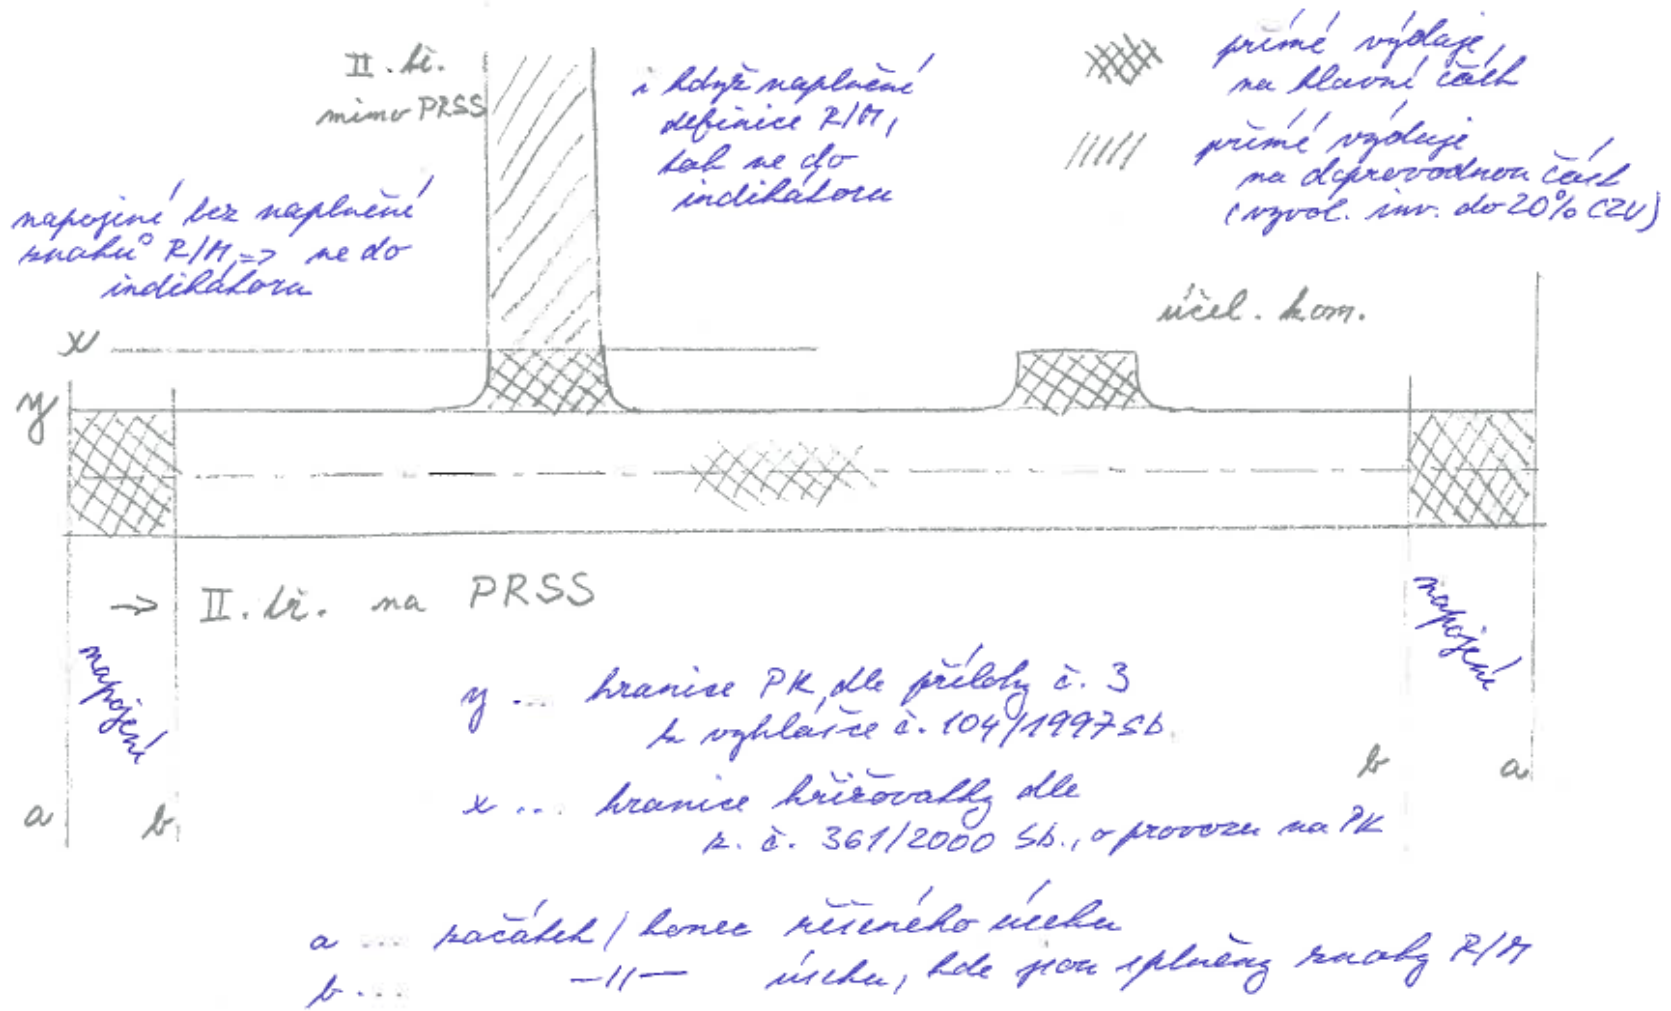 II. tř.
mimo PRSS
i když naplnění
definice R/M,
tak ne do
indikátoru
přímé výdaje
na hlavní část
přímé výdaje
na doprovodnou část
(vyvol. inv. do 20% CZV)
napojení bez naplnění
znaků R/M => ne do
indikátoru
účel. kom.
x
y
→ II. tř. na PRSS
napojení
napojení
y ... hranice PK dle přílohy č. 3
k vyhlášce č. 104/1997 Sb.
x ... hranice křižovatky dle
z. č. 361/2000 Sb., o provozu na PK
a
b
b
a
a ... začátek / konec řešeného úseku
b ... -11- úseku, kde jsou splněny znaky R/M